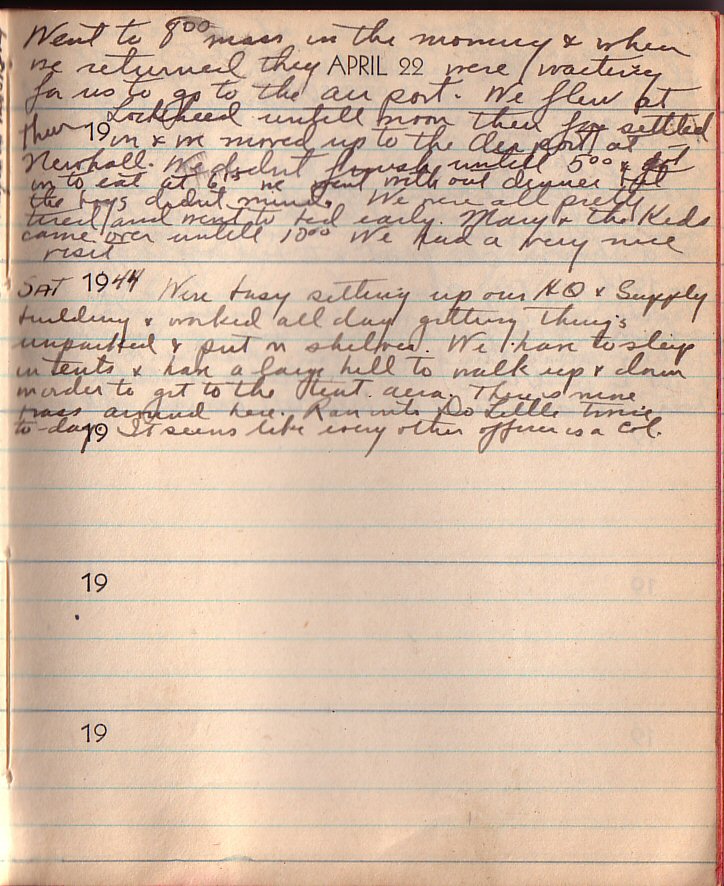 Went to 8⁰⁰ mass in the morning & when
we returned they APRIL 22 were waiting
for us to go to the air port. We flew at
Lockheed untill noon then settled
19 in & we moved up to the air port at
Newhall. We didnt finish untill 5⁰⁰ & got
in to eat at 6¹⁵ we went without dinner but
the boys didnt mind. We were all pretty
tired and went to bed early. Mary & the Kids
came over untill 10⁰⁰ We had a very nice
visit
SAT 1944 Were busy setting up our HQ & Supply
building & worked all day getting things
unpacked & put on shelves. We have to sleep
in tents & have a large hill to walk up & down
inorder to get to the tent aera. There's more
brass around here. Ran into Do Little twice
to-day. 19 It seems like every other officer is a Col.
19
19